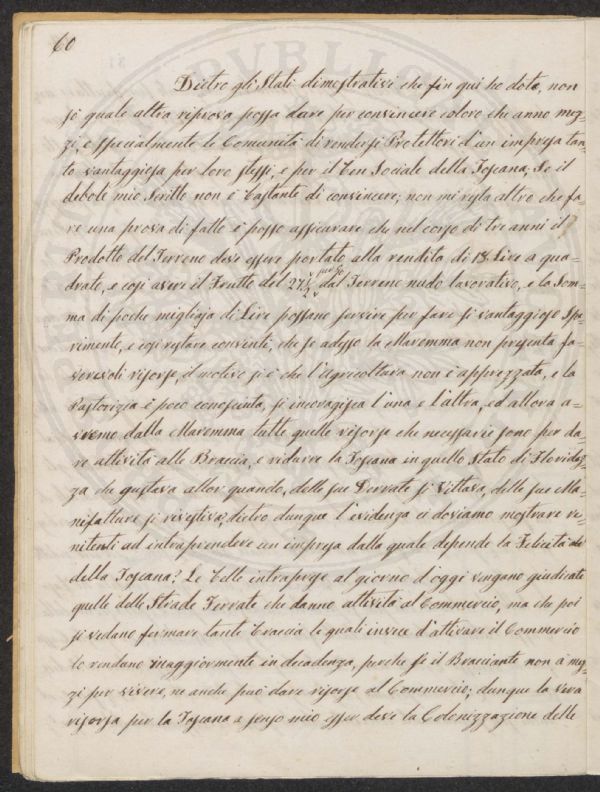 60
Dietro gli Stati dimostrativi che fin qui ho dato, non
so quale altra riprova possa dare per convincere coloro che anno mez-
zi, e specialmente le Comunità di rendersi Protettori d'un impresa tan-
to vantaggiosa per loro stessi, e per il Ben Sociale della Toscana; Se il
debole mio Scritto non è bastante di convincere; non mi resta altro che fa-
re una prova di fatto e posso assicurare che nel corso di tre anni il
Prodotto del Terreno deve essere portato alla rendita di 18 Lire a qua-
drato, e così avere il Frutto del 27½ per % dal Terreno nudo lavorativo, e la Som-
ma di poche migliaja di Lire possano servire per fare sì vantaggioso Spe-
rimento, e così restare convinti, che se adesso la Maremma non presenta fa-
vorevoli risorse, il motivo si è che l'Agricoltura non è apprezzata, e la
Pastorizia è poco conosciuta, si incoragisca l'una e l'altra, ed allora a-
vremo dalla Maremma tutte quelle risorse che necessarie sono per da-
re attività alle Braccia, e ridurre la Toscana in quello Stato di Floridez-
za che gustava allor quando, delle sue Derrate si Vittava, delle sue Ma-
nifatture si rivestiva; dietro dunque l'evidenza ci doviamo mostrare re-
nitenti ad intraprendere un impresa dalla quale depende la Felicità
della Toscana? Le belle intraprese al giorno d'oggi vengano giudicate
quelle delle Strade Ferrate che danno attività al Commercio, ma che poi
si vedano fermare tante braccia le quali invece d'attivare il Commercio
lo rendano maggiormente in decadenza, perche se il Bracciante non à mez-
zi per vivere, ne anche può dare risorse al Commercio; dunque la vera
risorsa per la Toscana a senso mio esser deve la Colonizzazione delle